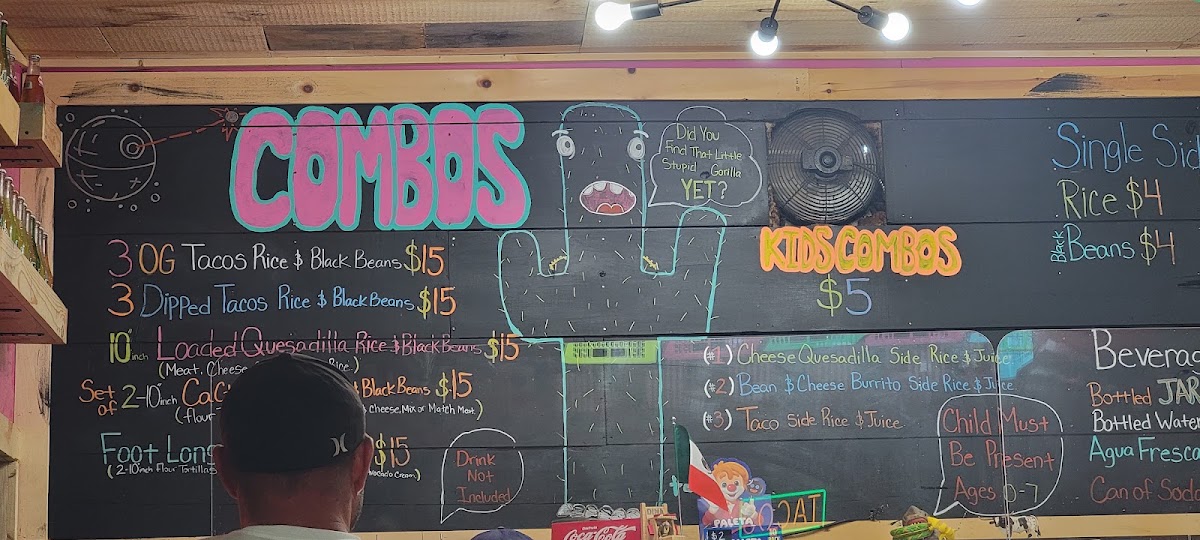 COMBOS
3 OG Tacos Rice & Black Beans $15
3 Dipped Tacos Rice & Black Beans $15
10 inch Loaded Quesadilla Rice & Black Beans $15
(Meat, Cheese
Rice)
Set of 2-10 inch
Black Beans $15
(flour
& Cheese, Mix or Match Meat)
Foot Long
$15
(2-10 inch Flour Tortillas
Avocado Cream)
Drink
Not
Included
Did You
Find That Little
Stupid Gorilla
YET?
KIDS COMBOS
$5
(#1) Cheese Quesadilla Side Rice & Juice
(#2) Bean & Cheese Burrito Side Rice & Juice
(#3) Taco Side Rice & Juice
Child Must
Be Present
Ages 0-7
Single Sid
Rice $4
Black Beans $4
Beverag
Bottled JAR
Bottled Water
Agua Fresca
Can of Soda
Coca-Cola
PALETA
$2